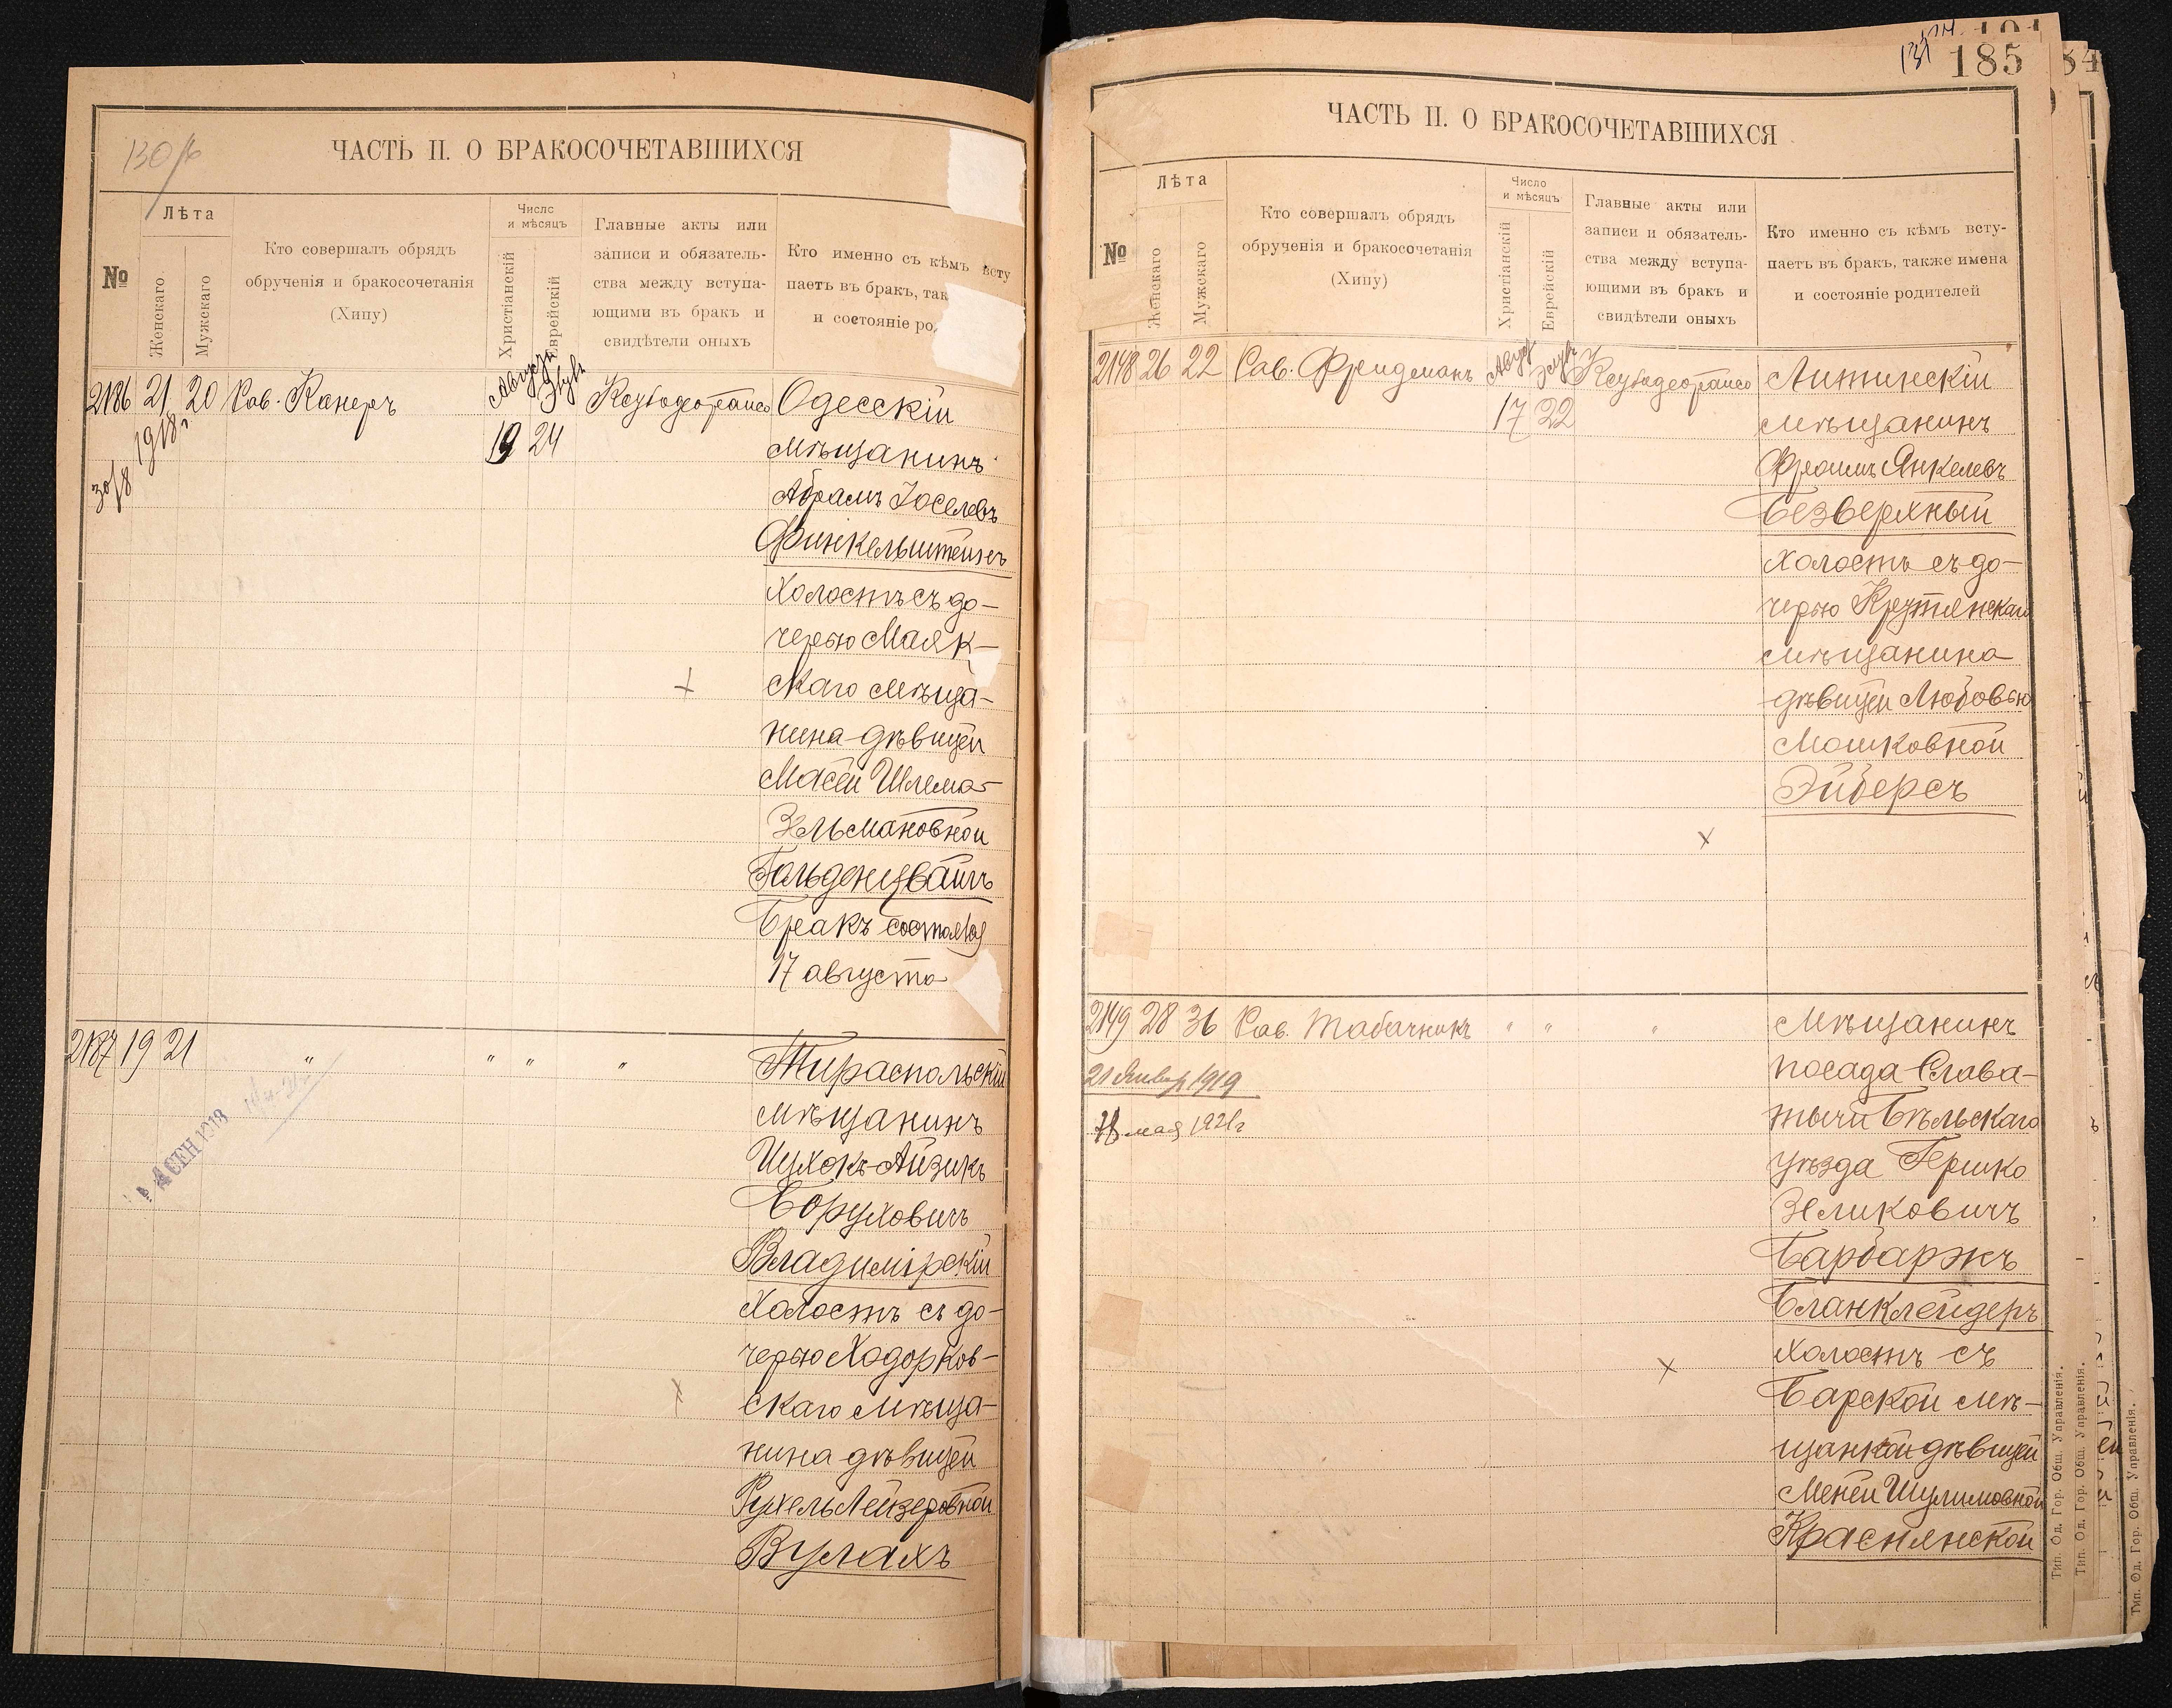 130/б
ЧАСТЬ II. О БРАКОСОЧЕТАВШИХСЯ
№
Лѣта
Женскаго
Мужскаго
Кто совершалъ обрядъ
обрученія и бракосочетанія
(Хипу)
Число
и мѣсяцъ
Христіанскій
Еврейскій
Главные акты или
записи и обязатель-
ства между вступа-
ющими въ бракъ и
свидѣтели оныхъ
Кто именно съ кѣмъ всту
паетъ въ бракъ, так
и состояніе ро
2186 21 20 Рав. Канеръ
Августъ
Элулъ
19 24
1918 г
30/8
Одесскій
мѣщанинъ
Абрамъ Іоселевъ
Финкельштейнъ
холостъ съ до-
черью Маяк-
скаго мѣща-
нина дѣвицей
Масей Шлема-
Зельмановной
Гольденцвайгъ
Бракъ состоялся
17 августа
2187 19 21 " " " "
СЕН 1918
Тираспольскій
мѣщанинъ
Ицхокъ-Айзикъ
Боруховичъ
Владимірскій
Холостъ съ до-
черью Ходорков-
скаго мѣща-
нина дѣвицей
Рухель Лейзеровной
Вулахъ
185
ЧАСТЬ II. О БРАКОСОЧЕТАВШИХСЯ
№
Лѣта
Женскаго
Мужскаго
Кто совершалъ обрядъ
обрученія и бракосочетанія
(Хипу)
Число
и мѣсяцъ
Христіанскій
Еврейскій
Главные акты или
записи и обязатель-
ства между вступа-
ющими въ бракъ и
свидѣтели оныхъ
Кто именно съ кѣмъ всту-
паетъ въ бракъ, также имена
и состояніе родителей
2148 26 22 Рав. Фридманъ
Август
Элулъ
17 22
Литинскій
мѣщанинъ
Фроимъ Янкелевъ
Безверхный
холостъ съ до-
черью Крутянскаго
мѣщанина
дѣвицей Любовью
Мошковной
Эйберсъ
2149 28 36 Рав. Табачникъ " " "
21 Январ 1919
18 мая 1921 г
Мѣщанинъ
посада Слава-
тычи Бѣльскаго
уѣзда Гершко
Зеликовичъ
Барбаржъ
Бланклейдеръ
холостъ съ
Барской мѣ-
щанкой дѣвицей
Меней Шулимовной
Краснянской
Тип. Од. Гор. Общ. Управленія.
Тип. Од. Гор. Общ. Управленія.
Тип. Од. Гор. Общ. Управленія.